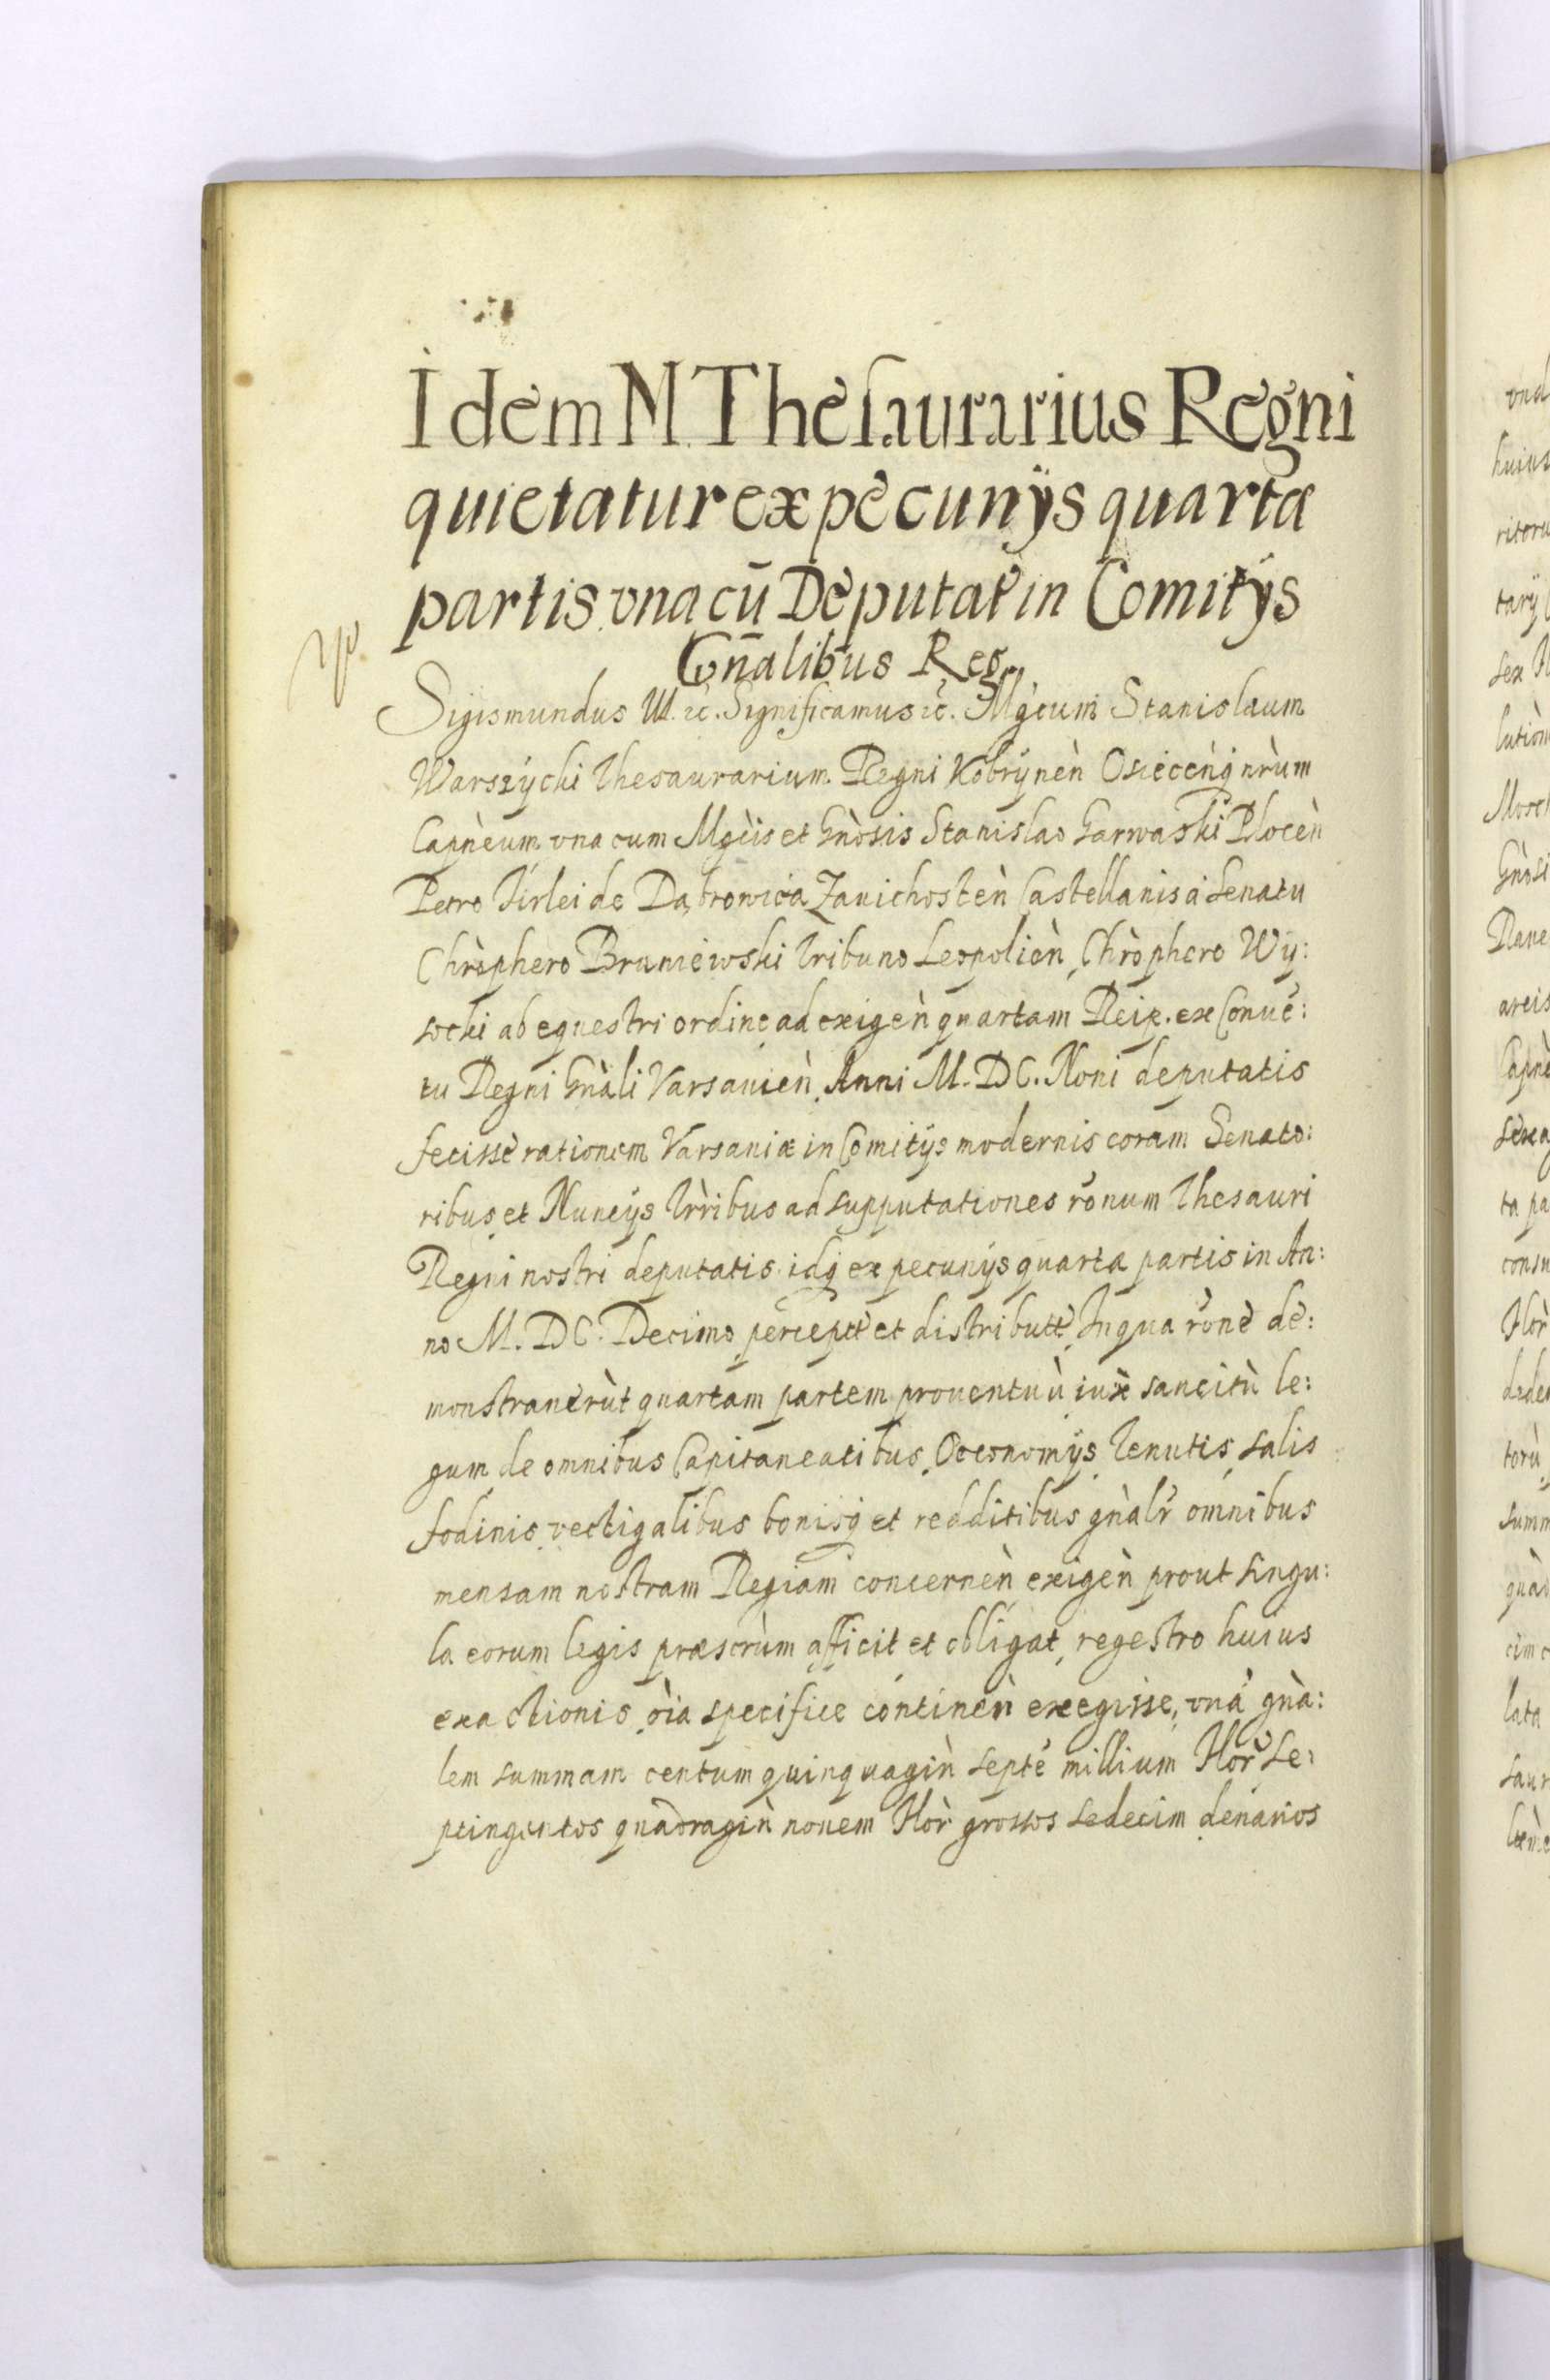 Idem M. Thesaurarius Regni
quietatur ex pecunijs quarta
partis vna cū Deputat in Comitijs
Gn̄alibus Reg.
Sigismundus III. &c. Significamus &c. Mgcum Stanislaum
Warszÿcki Thesaurarium Regni Kobrÿnen̄ Osiecen̄q nrùm
Capnèum vna cum Mgcis et Gnòsis Stanislao Garwaski Plocen̄
Petro Firlei de Dąbrowica Zauichosten̄ Castellanis à Senatu
Chròphero Bruniewski Tribuno Leopolien̄, Chròphero Wÿ:
socki ab equestri ordine ad exigen̄ quartam Reip. ex Conuē:
tu Regni Gnàli Varsauien̄ Anni M.DC.Noni deputatis
fecisse rationem Varsauiæ in Comitijs modernis coram Senato:
ribus et Nuncijs Trribus ad supputationes rònum Thesauri
Regni nostri deputatis idq ex pecunijs quarta partis in An:
no M.DC.Decimo percept et distribut, In qua ròne de:
monstrauerùt quartam partem prouentuù iux sancitù le:
gum de omnibus Capitaneatibus, Oeconomijs, Tenutis, salis
fodinis, vectigalibus bonisq et redditibus gnàlr omnibus
mensam nostram Regiam concernen̄ exigen̄ prout singu:
la eorum legis præscrùm afficit et obligat, regestro huius
exactionis òia specifice continen̄ exegisse, vnà gnà:
lem summam centum quinquagin̄ septē millium Flor se:
ptingentos quadragin̄ nouem Flor grossos sedecim denarios